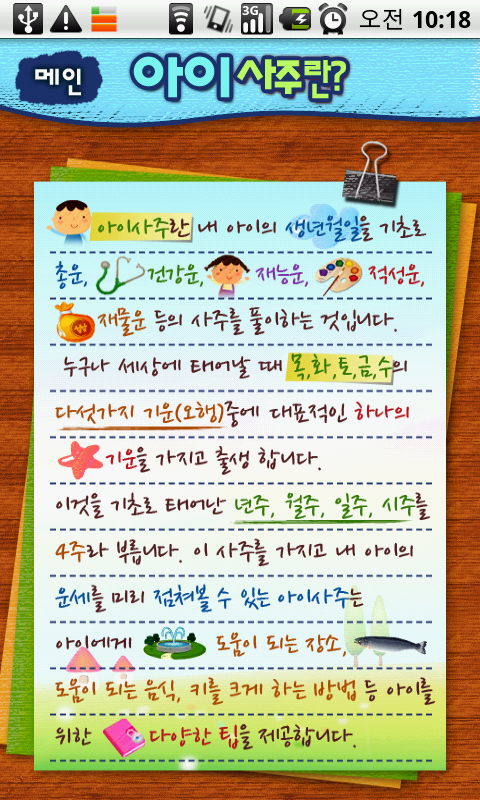 3G 오전 10:18
메인 아이 사주란?
아이사주란 내 아이의 생년월일을 기초로
총운, 건강운, 재능운, 적성운,
재물운 등의 사주를 풀이하는 것입니다.
누구나 세상에 태어날 때 목,화,토,금,수의
다섯가지 기운(오행)중에 대표적인 하나의
기운을 가지고 출생 합니다.
이것을 기초로 태어난 년주, 월주, 일주, 시주를
4주라 부릅니다. 이 사주를 가지고 내 아이의
운세를 미리 점쳐볼 수 있는 아이사주는
아이에게 도움이 되는 장소,
도움이 되는 음식, 키를 크게 하는 방법 등 아이를
위한 다양한 팁을 제공합니다.